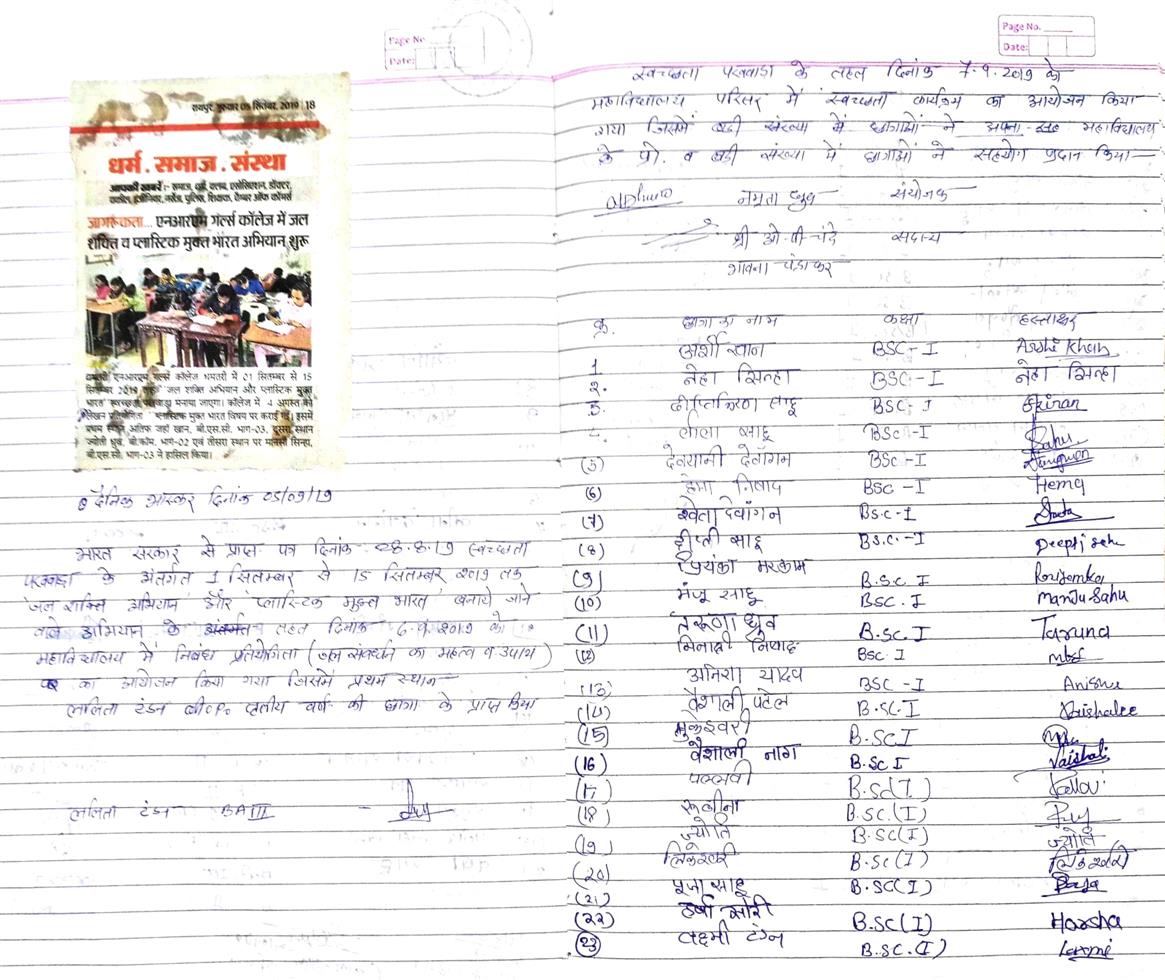 Page No.
Date:
रायपुर, गुरुवार 05 सितंबर, 2019 | 18
धर्म . समाज . संस्था
आपकी खबरें :- समाज, धर्म, क्लब, एसोसिएशन, डॉक्टर,
वकील, इंजीनियर, नर्सेज, पुलिस, शिक्षक, चेम्बर ऑफ कॉमर्स
जागरूकता... एनआरएम गर्ल्स कॉलेज में जल
शक्ति व प्लास्टिक मुक्त भारत अभियान शुरू
धमतरी एनआरएम गर्ल्स कॉलेज धमतरी में 01 सितम्बर से 15
सितम्बर 2019 तक जल शक्ति अभियान और प्लास्टिक मुक्त
भारत स्वच्छता पखवाड़ा मनाया जाएगा। कॉलेज में 4 अगस्त को
लेखन प्रतियोगिता प्लास्टिक मुक्त भारत विषय पर कराई गई। इसमें
प्रथम स्थान आतिफ जहां खान, बी.एस.सी. भाग-03, दूसरा स्थान
ज्योती ध्रुव, बी.कॉम. भाग-02 एवं तीसरा स्थान पर मानसी सिन्हा,
बी.एस.सी. भाग-03 ने हासिल किया।
दैनिक भास्कर दिनांक 05/09/19
भारत सरकार से प्राप्त पत्र दिनांक 28.8.19 स्वच्छता
पखवाड़ा के अंतर्गत 1 सितम्बर से 15 सितम्बर 2019 तक
'जल शक्ति अभियान' और 'प्लास्टिक मुक्त भारत' बनाये जाने
वाले अभियान के अंतर्गत तहत दिनांक 6.9.2019 को
महाविद्यालय में निबंध प्रतियोगिता (जल संवर्धन का महत्व व उपाय)
का आयोजन किया गया जिसमें प्रथम स्थान
ललिता टंडन बी०ए० तृतीय वर्ष की छात्रा के प्राप्त किया
ललिता टंडन BA III -
Page No.
Date:
स्वच्छता पखवाडा के तहत दिनांक 7.9.2019 को
महाविद्यालय परिसर में स्वच्छता कार्यक्रम का आयोजन किया
गया जिसमें बड़ी संख्या में छात्राओं ने अपना सह महाविद्यालय
के प्रो. व बड़ी संख्या में छात्राओं ने सहयोग प्रदान किया—
नम्रता ध्रुव संयोजक
श्री ओ.पी. चंदे सदस्य
भावना चंद्राकर
क्र. छात्रा का नाम कक्षा हस्ताक्षर
1 अर्शी खान BSC-I Arshi Khan
2. नेहा सिन्हा BSC-I नेहा सिन्हा
3. दीप्तिकिरण साहू BSC-I
4. लीला साहू BSC-I Sahu
(5) देवयानी देवांगन BSC-I
(6) हेमा निषाद BSC-I Hema
(7) श्वेता देवांगन B.S.C-I
(8) दीप्ती साहू B.S.C.-I Deepti Sahu
(9) प्रियंका मरकाम B.S.C I Priyanka
(10) मंजू साहू BSC.I Manju Sahu
(11) तरूणा ध्रुव B.SC.I Taruna
(12) मिनाक्षी निषाद BSC.I
(13) अनिशा यादव BSC-I Anisha
(14) वैशाली पटेल B.SC.I Vaishalee
(15) मुकेश्वरी B.SC I
(16) वैशाली नाग B.SC I Vaishali
(17) पल्लवी B.SC(I) Pallavi
(18) रूबीना B.SC.(I)
(19) ज्योति B.SC(I) ज्योति
(20) लिकेश्वरी B.SC(I) लिकेश्वरी
(21) पूजा साहू B.SC(I) Pooja
(22) हर्षा सोरी B.SC(I) Harsha
(23) लक्ष्मी टंडन B.SC.(I) Laxmi